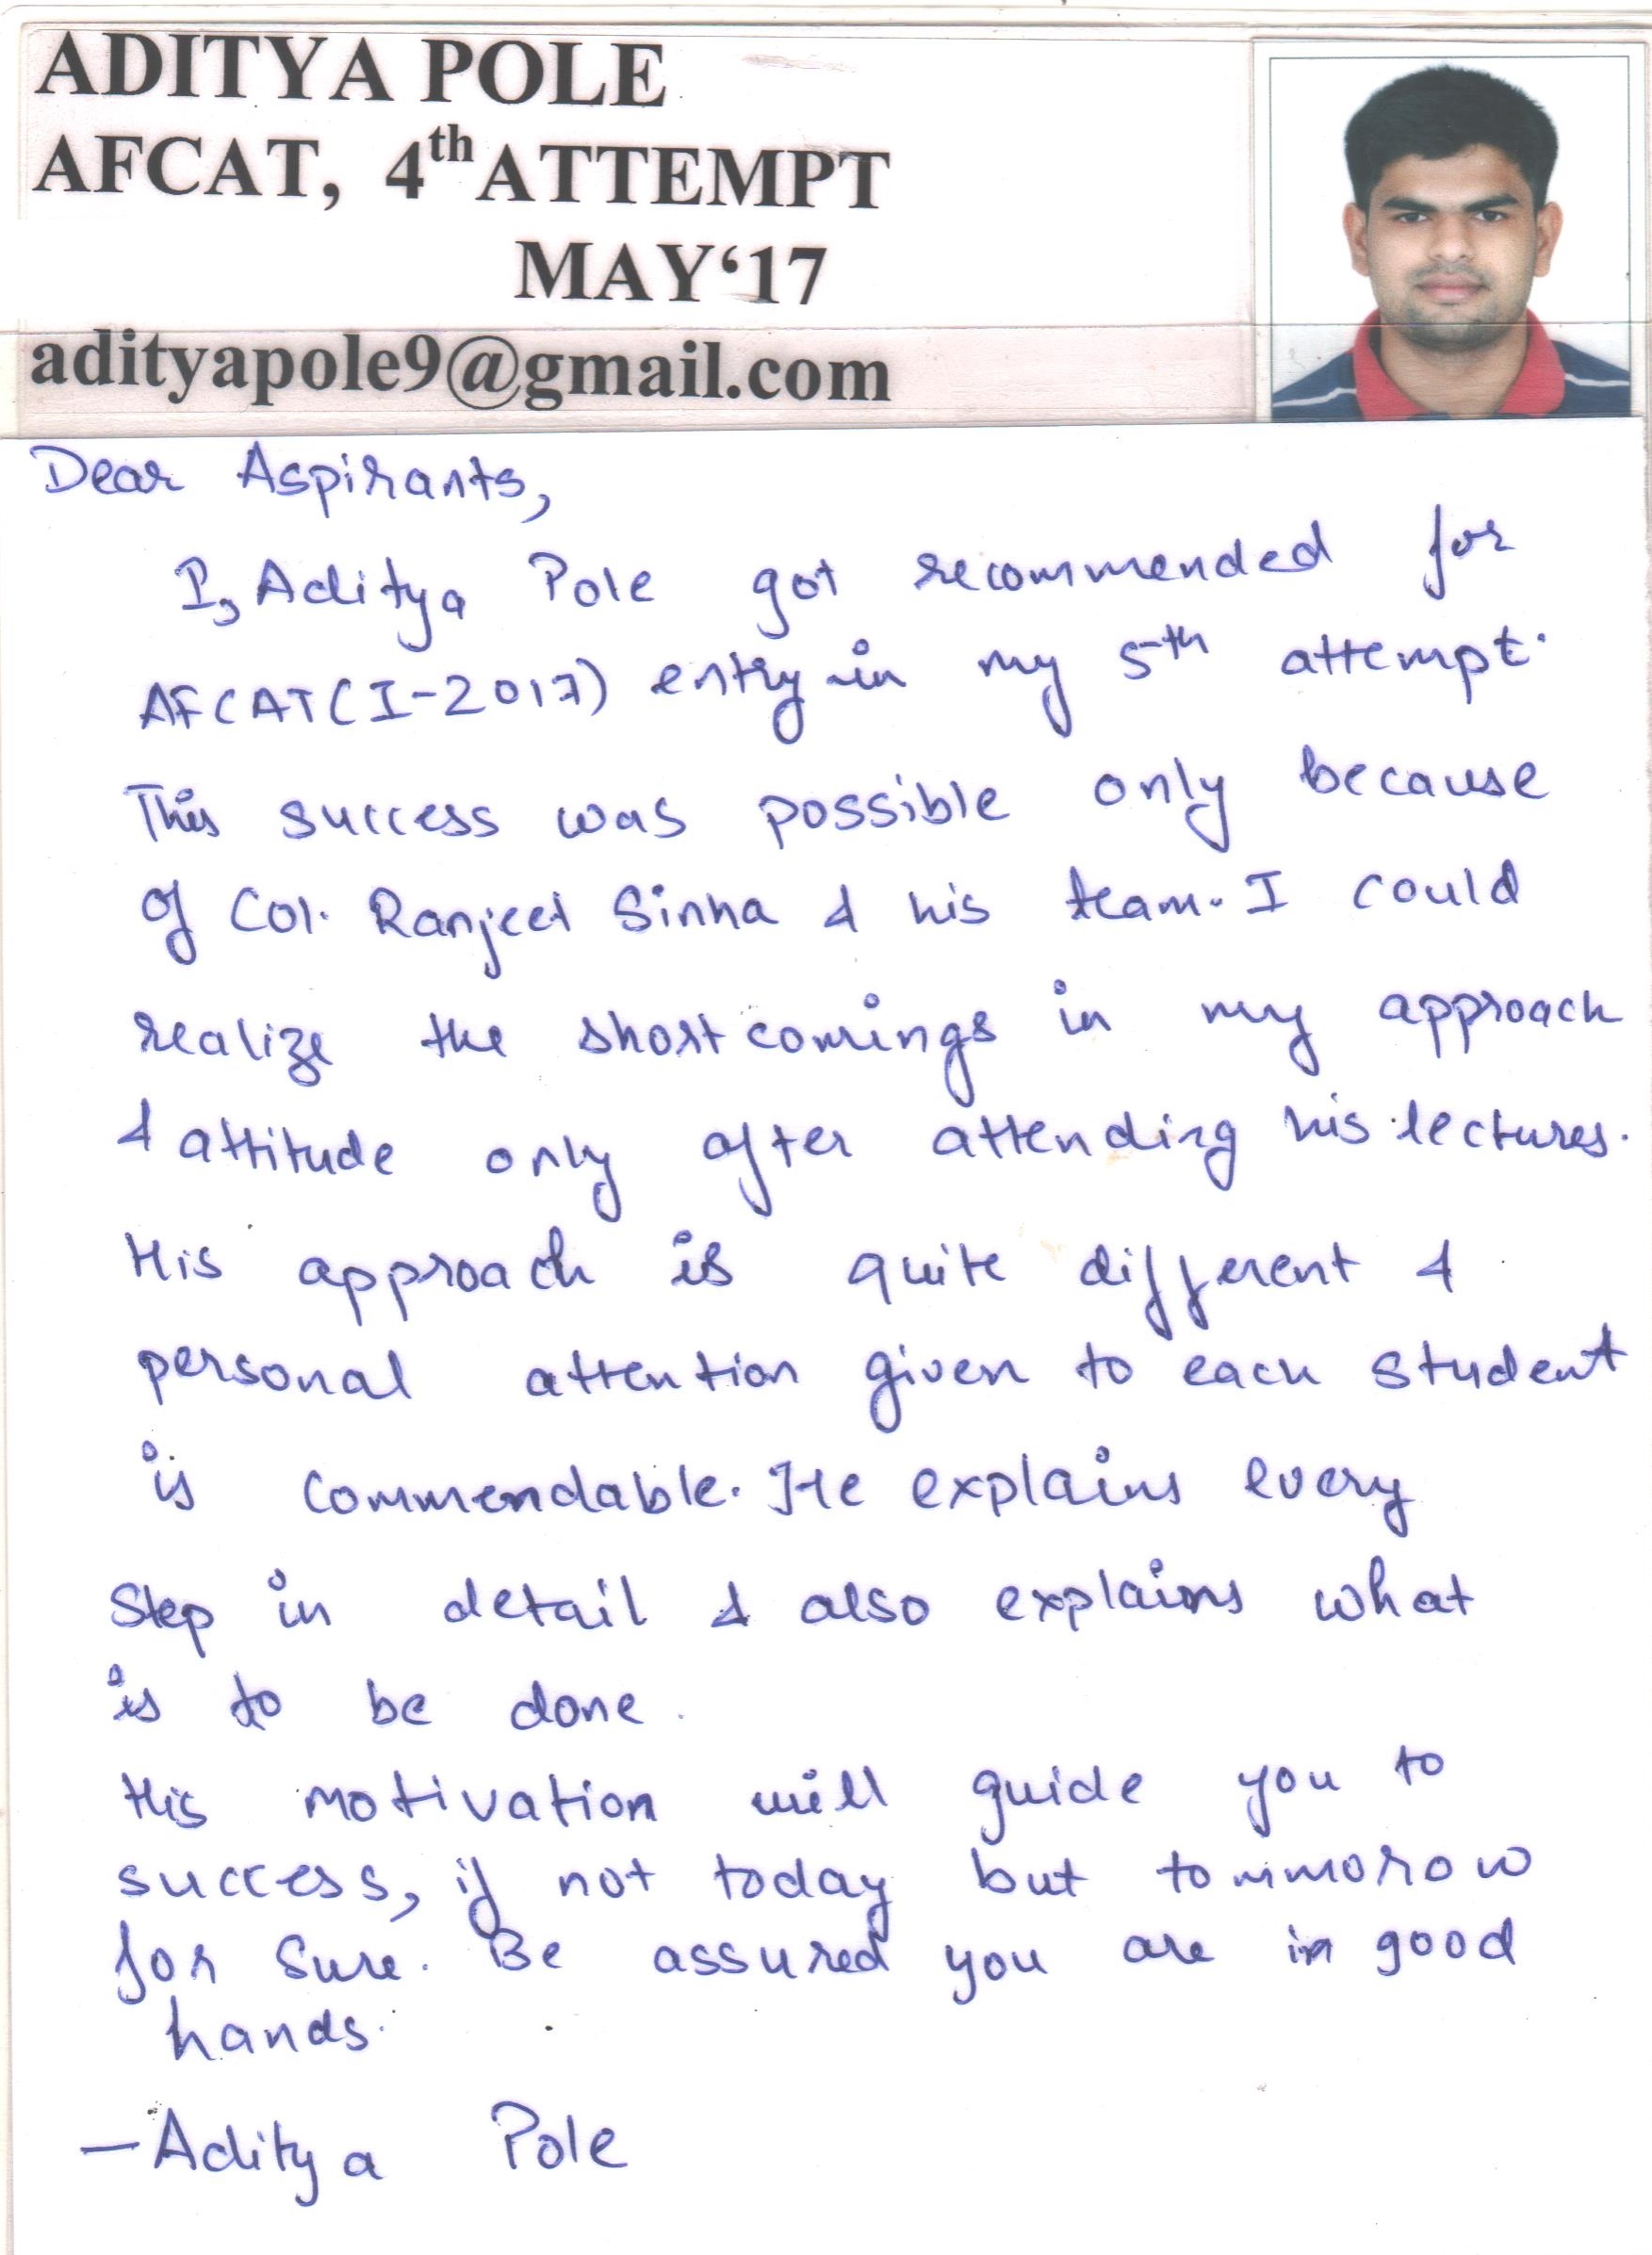 ADITYA POLE
AFCAT, 4th ATTEMPT
MAY‘17
adityapole9@gmail.com
Dear Aspirants,
I, Aditya Pole got recommended for
AFCAT(I-2017) entry in my 5th attempt.
This success was possible only because
of Col. Ranjeet Sinha & his team. I could
realize the shortcomings in my approach
& attitude only after attending his lectures.
His approach is quite different &
personal attention given to each student
is commendable. He explains every
step in detail & also explains what
is to be done.
His motivation will guide you to
success, if not today but tommorow
for sure. Be assured you are in good
hands.
— Aditya Pole